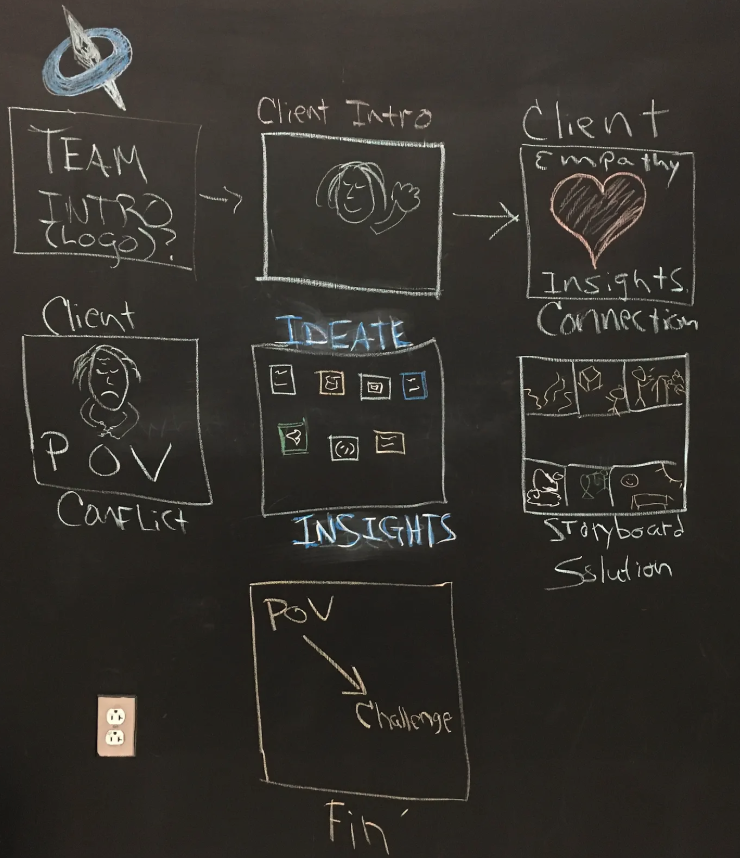 TEAM
INTRO
(LOGO)?
Client Intro
Client
Empathy
Insights
Connection
Client
POV
Conflict
IDEATE
INSIGHTS
Storyboard
Sslution
POV
Challenge
Fin'